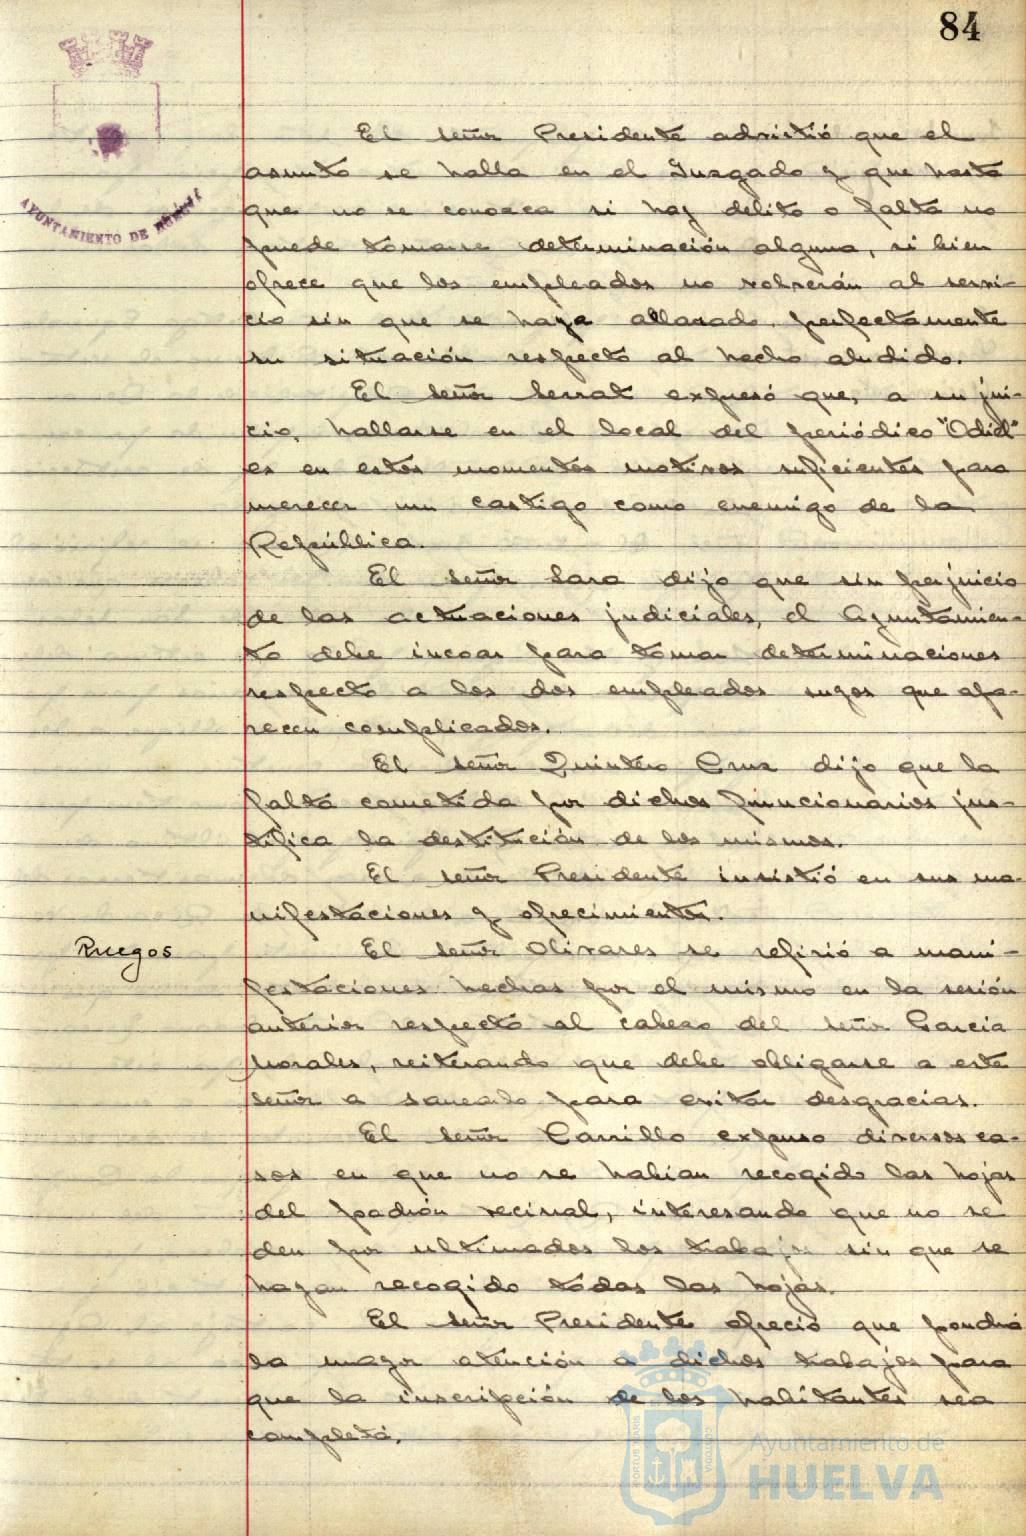 84
AYUNTAMIENTO DE HUELVA
El señor Presidente advirtió que el
asunto se halla en el Juzgado y que hasta
que no se conozca si hay delito o falta no
puede tomarse determinación alguna, si bien
ofrece que los empleados no volverán al servi-
cio sin que se haya aclarado perfectamente
su situación respecto al hecho aludido.
El señor Serrat expresó que, a su jui-
cio, hallarse en el local del periódico "Odiel"
es en estos momentos motivos suficientes para
merecer un castigo como enemigo de la
República.
El señor Lara dijo que sin perjuicio
de las actuaciones judiciales, el Ayuntamien-
to debe incoar para tomar determinaciones
respecto a los dos empleados suyos que apa-
recen complicados.
El señor Quintero Cruz dijo que la
falta cometida por dichos funcionarios jus-
tifica la destitución de los mismos.
El señor Presidente insistió en sus ma-
nifestaciones y ofrecimientos.
Ruegos
El señor Olivares se refirió a mani-
festaciones hechas por el mismo en la sesión
anterior respecto al cabezo del señor García
Morales, reiterando que debe obligarse a este
señor a sanearlo para evitar desgracias.
El señor Carrillo expuso diversos ca-
sos en que no se habían recogido las hojas
del padrón vecinal, interesando que no se
den por ultimados los trabajos sin que se
hayan recogido todas las hojas.
El señor Presidente ofreció que pondrá
la mayor atención a dichos trabajos para
que la inscripción de los habitantes sea
completa.
PORTUS MARIS
CUSTODIA
Ayuntamiento de
HUELVA